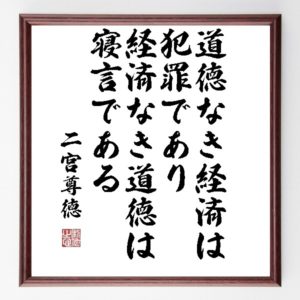 道徳なき経済は
犯罪であり
経済なき道徳は
寝言である
二宮尊徳